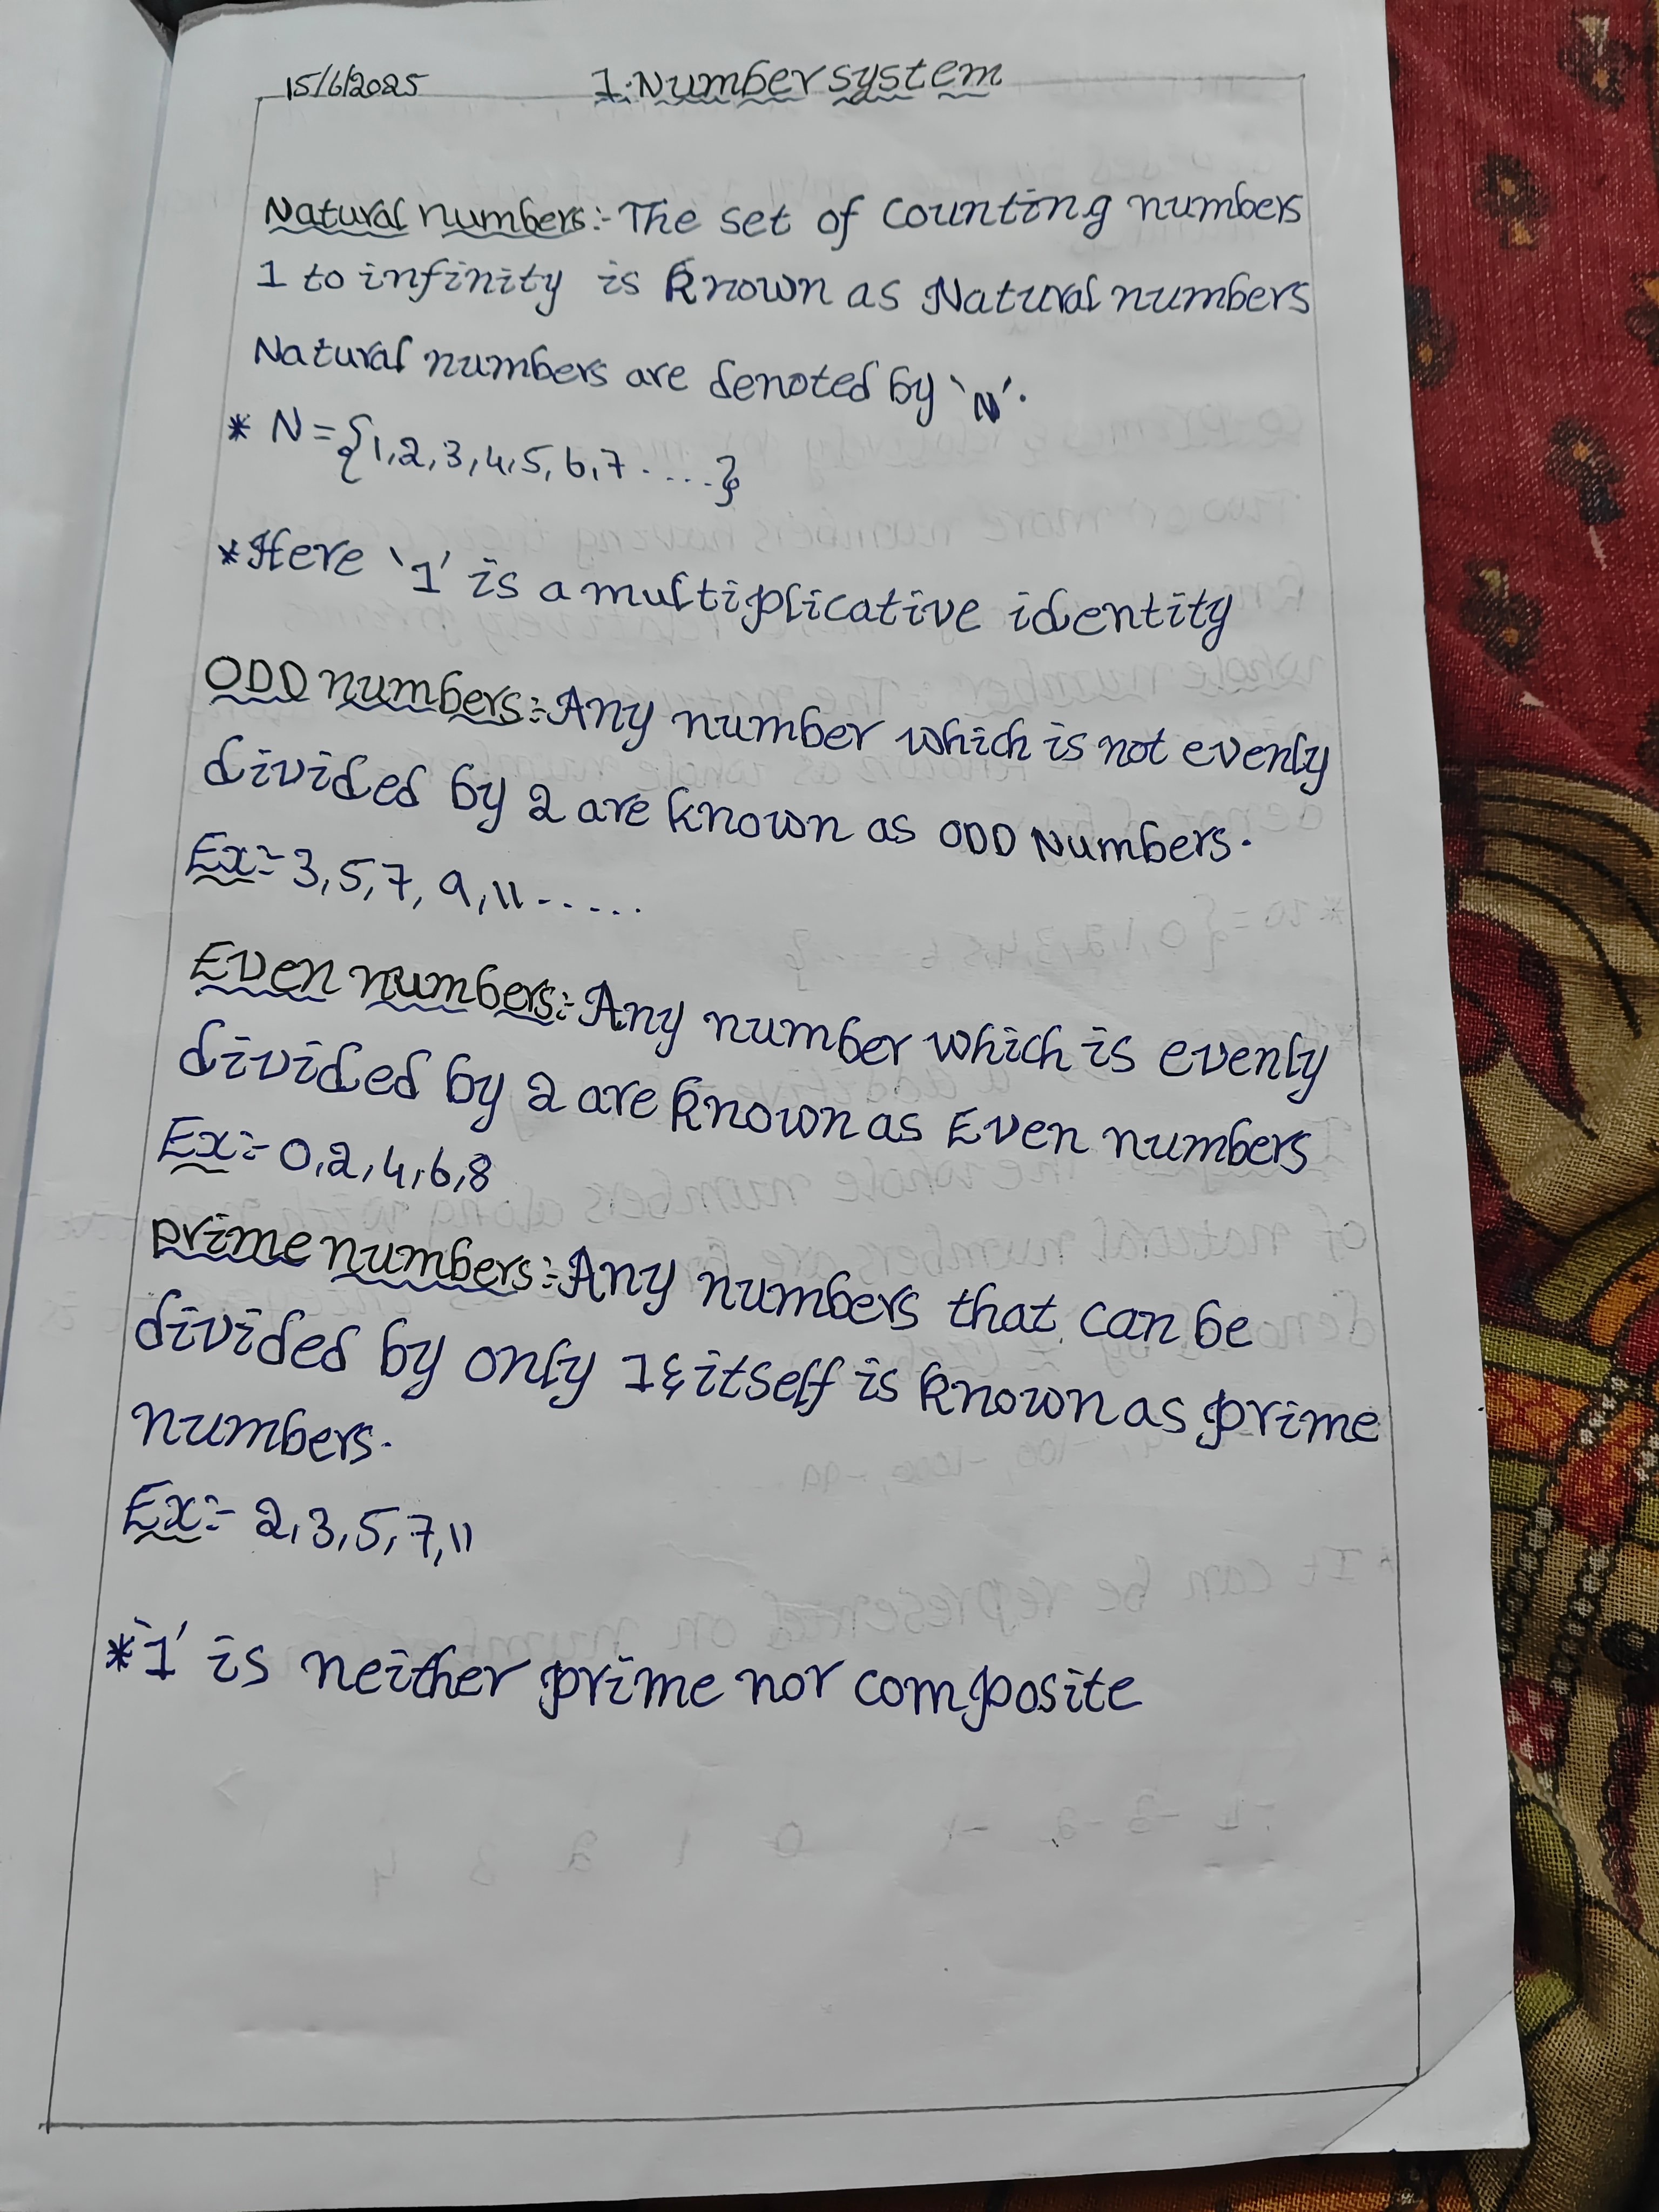 15/6/2025 1. Number system
Natural numbers:- The set of counting numbers
1 to infinity is known as Natural numbers
Natural numbers are denoted by 'N'.
* N = {1,2,3,4,5,6,7.....}
* Here '1' is a multiplicative identity
ODD numbers:- Any number which is not evenly
divided by 2 are known as ODD Numbers.
Ex:- 3,5,7,9,11......
Even numbers:- Any number which is evenly
divided by 2 are known as Even numbers
Ex:- 0,2,4,6,8
prime numbers:- Any numbers that can be
divided by only 1 & itself is known as prime
numbers.
Ex:- 2,3,5,7,11
* '1' is neither prime nor composite